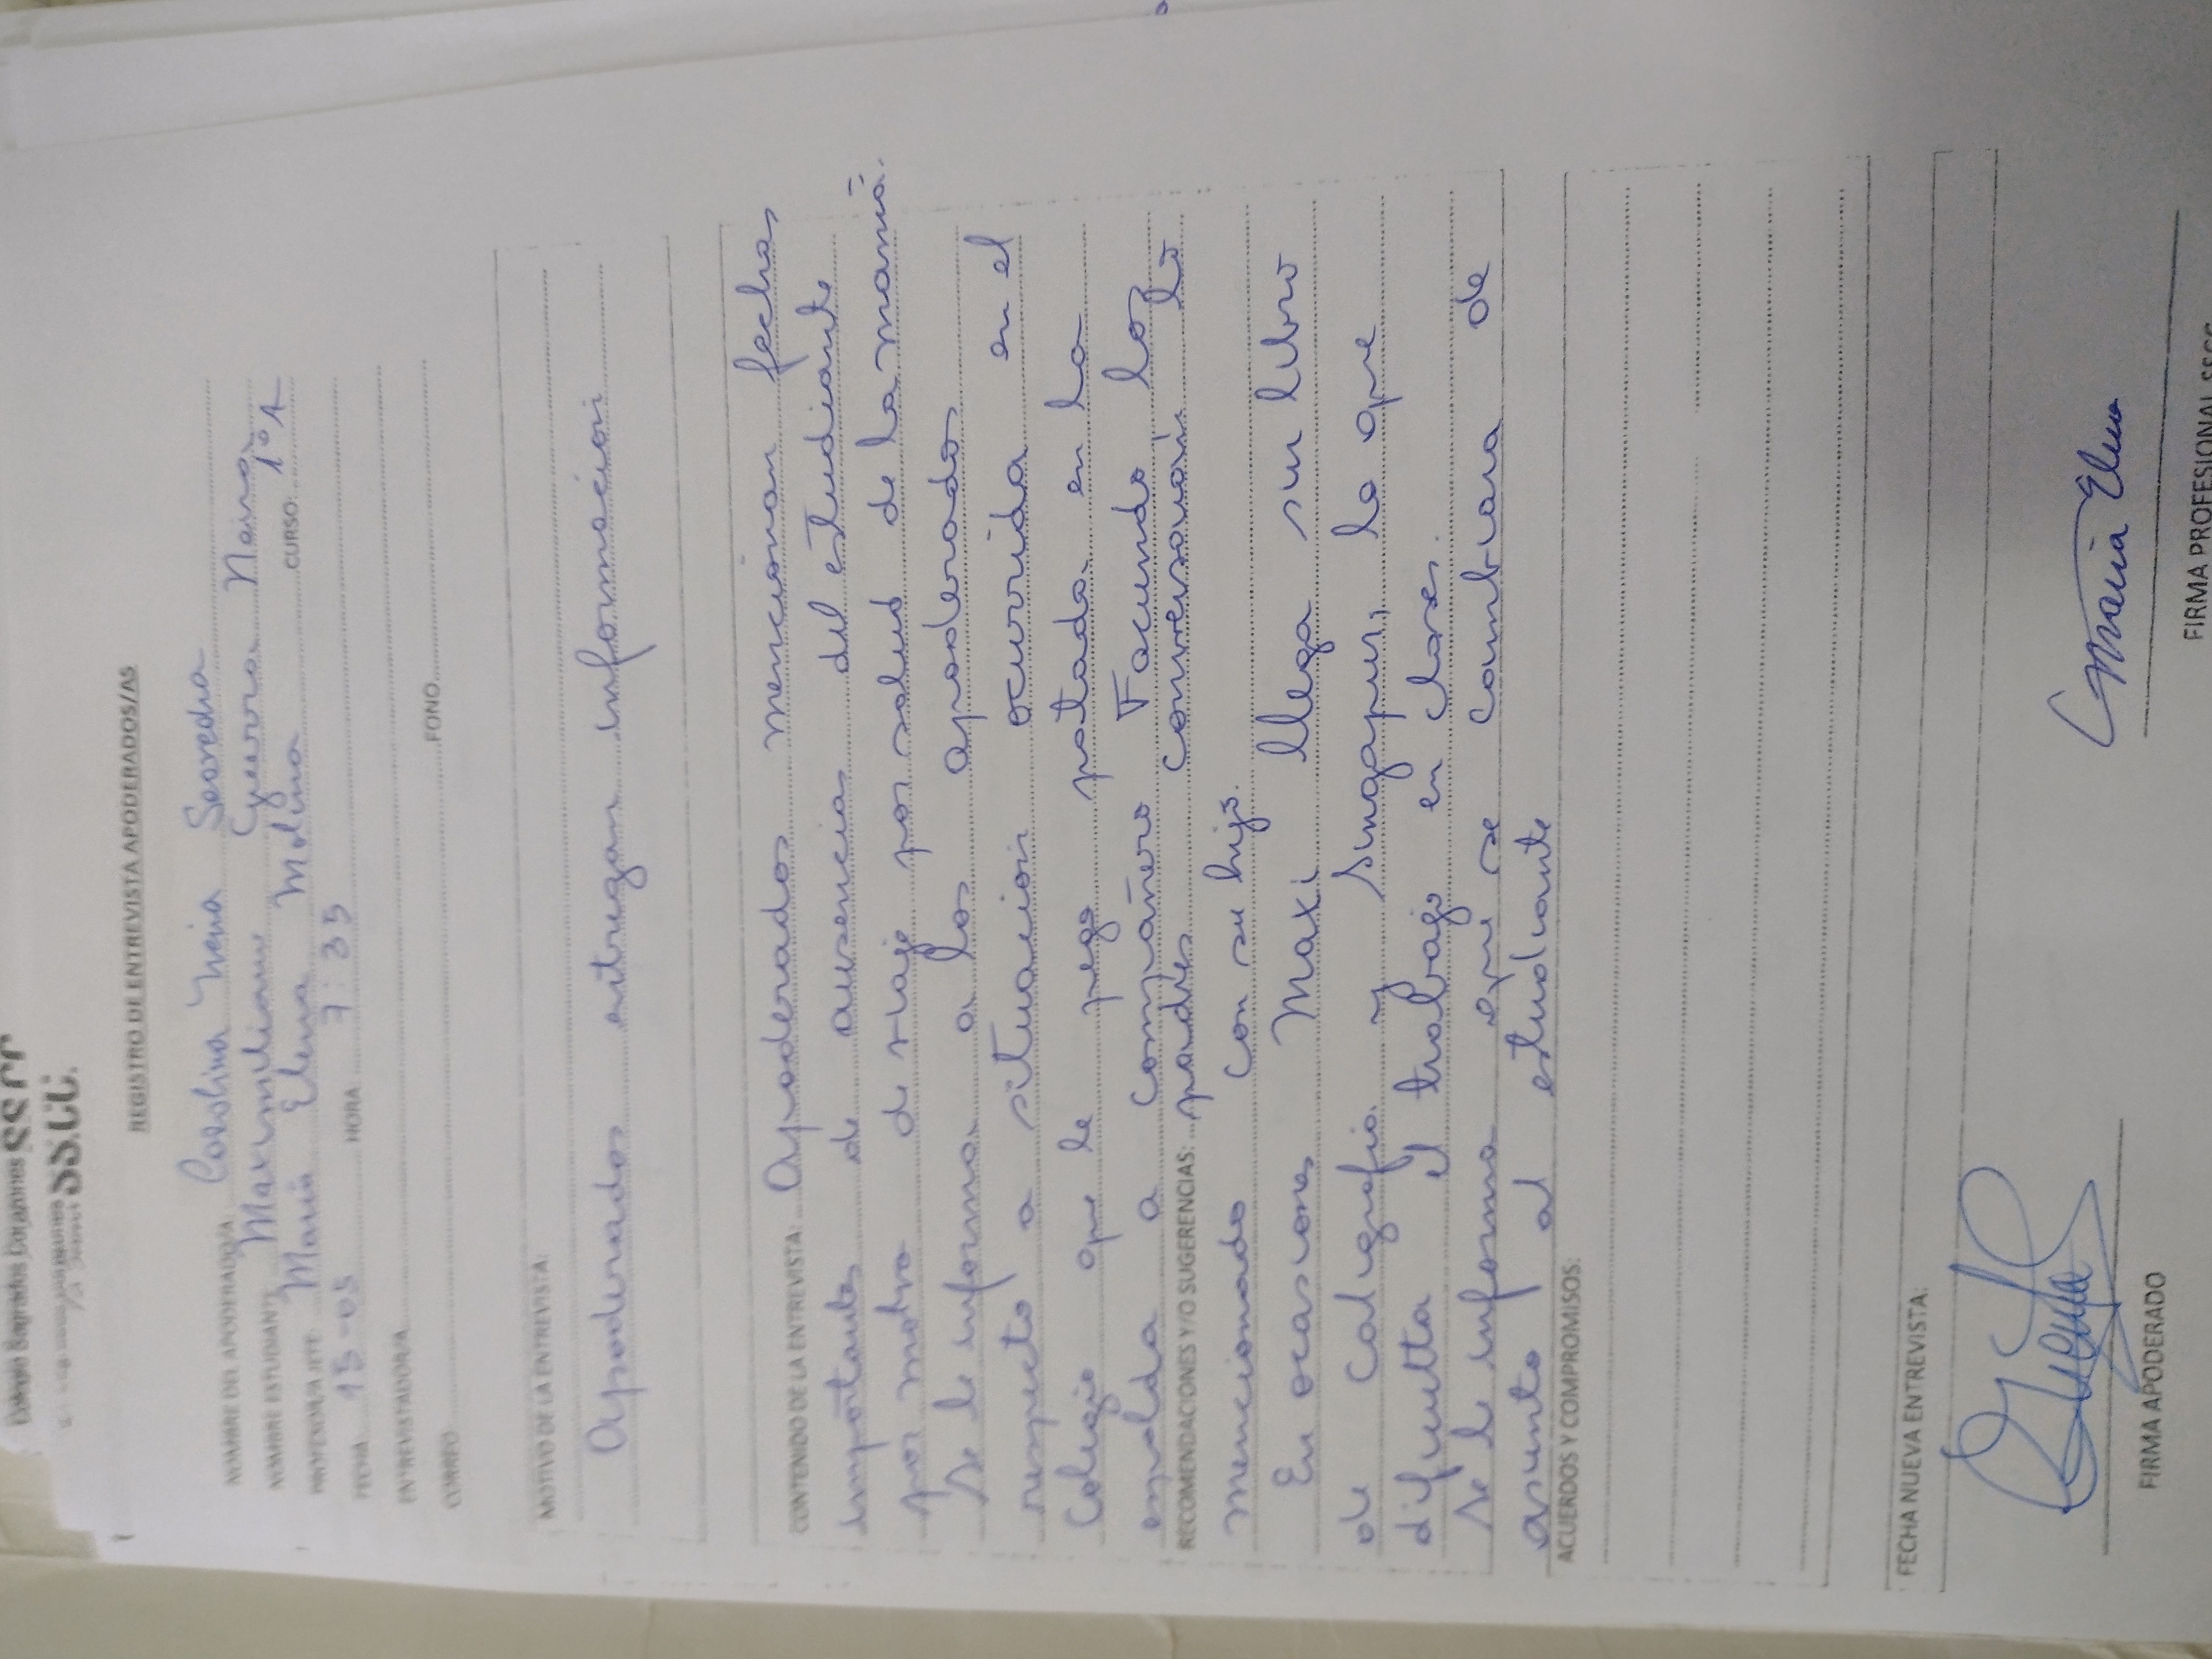 Colegio Sagrados Corazones SS.CC
SS.CC.
REGISTRO DE ENTREVISTA APODERADOS/AS
NOMBRE DEL APODERADO/A: Carolina Neira Saavedra
NOMBRE ESTUDIANTE Maximiliano Guerra Neira
PROFESOR/A JEFE María Elena Molina CURSO: 1°A
FECHA 15-05 HORA 7:35
ENTREVISTADOR/A
CORREO FONO
MOTIVO DE LA ENTREVISTA:
Apoderados entregan información
CONTENIDO DE LA ENTREVISTA: Apoderados mencionan fechas
importantes de ausencias del estudiante
por motivo de viaje por salud de la mamá.
Se le informa a los apoderados
respecto a situación ocurrida en el
Colegio que le pega patada en la
espalda a compañero Facundo, los
RECOMENDACIONES Y/O SUGERENCIAS: padres conversarán lo
mencionado con su hijo.
En ocasiones Maxi llega sin libro
de Caligrafía y Singapur, lo que
dificulta el trabajo en clases.
Se le informa que se cambiará de
asiento al estudiante
ACUERDOS Y COMPROMISOS:
FECHA NUEVA ENTREVISTA:
María Elena
FIRMA APODERADO FIRMA PROFESIONAL SSCC